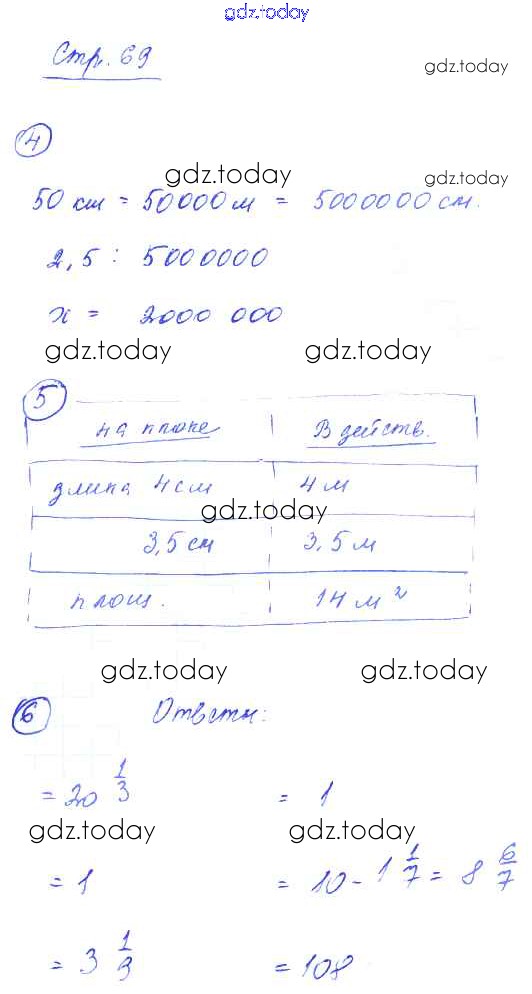 gdz.today
Стр. 69
gdz.today
4
gdz.today
gdz.today
50 км = 50000 м = 5000000 см.
2,5 : 5000000
x = 2000 000
gdz.today gdz.today
5
на плане В действ.
длина 4 см 4 м
gdz.today
3,5 см 3,5 м
площ. 14 м²
gdz.today gdz.today
6 Ответы:
= 20 1/3 = 1
gdz.today gdz.today
= 1 = 10 - 1 1/7 = 8 6/7
= 3 1/3 = 108